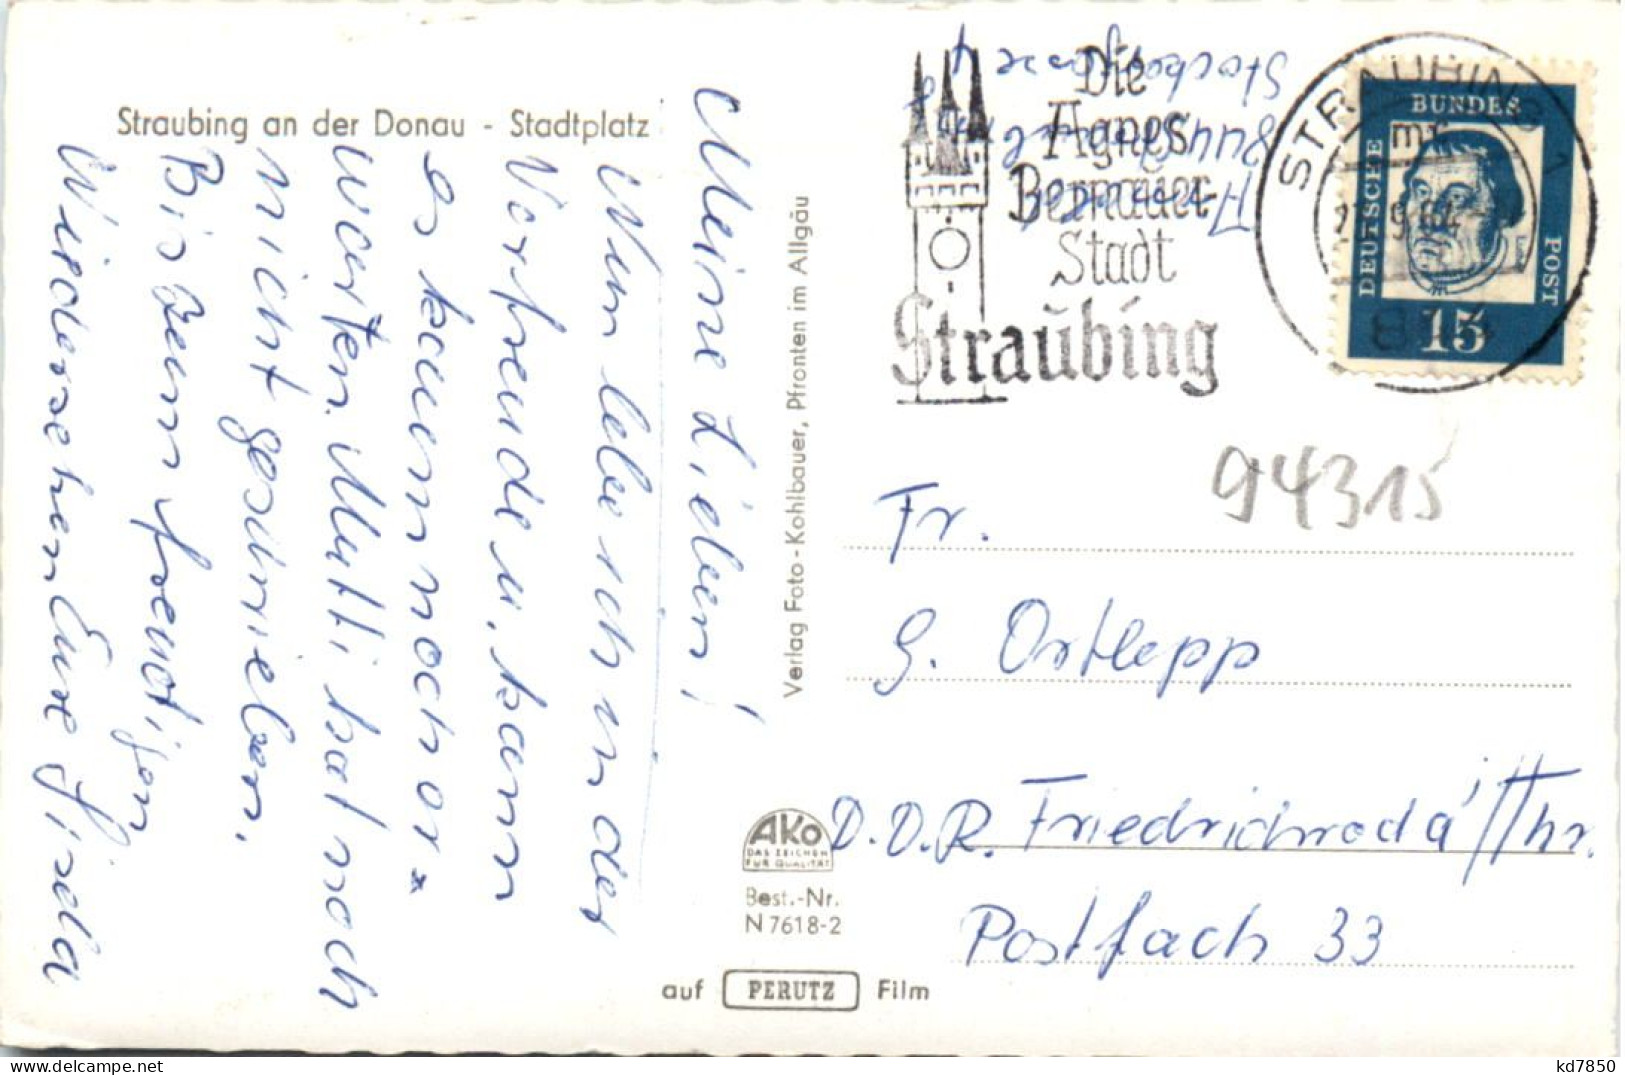 Straubing an der Donau - Stadtplatz
Meine Lieben!
Nun lebe ich in der
Vorfreude u. kann
es kaum noch er-
warten. Mutti hat noch
nicht geschrieben.
Bis zum freudigen
Wiedersehen Eure Gisela
Verlag Foto-Kohlbauer, Pfronten im Allgäu
AKo
DAS ZEICHEN
FÜR QUALITÄT
Best.-Nr.
N 7618-2
auf PERUTZ Film
Die
Agnes
Bernauer-
Stadt
Straubing
STRAUBING 1
mr
9.64
DEUTSCHE
BUNDES
POST
15
94315
Fr.
G. Ortlepp
D.D.R. Friedrichroda/Thr.
Postfach 33
kd7850